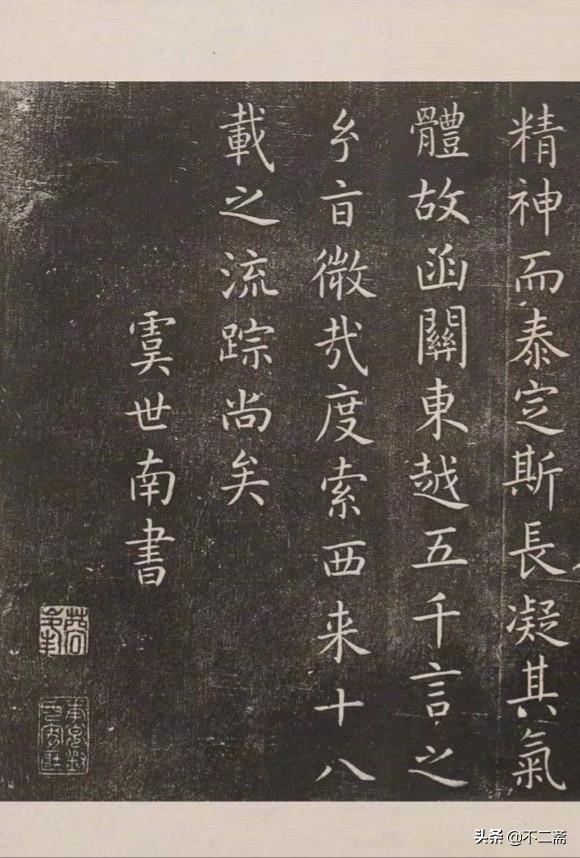 精神而泰定斯長凝其氣
體故函關東越五千言之
玄旨微哉度索西来十八
載之流踪尚矣
虞世南書
头条 @不二斋